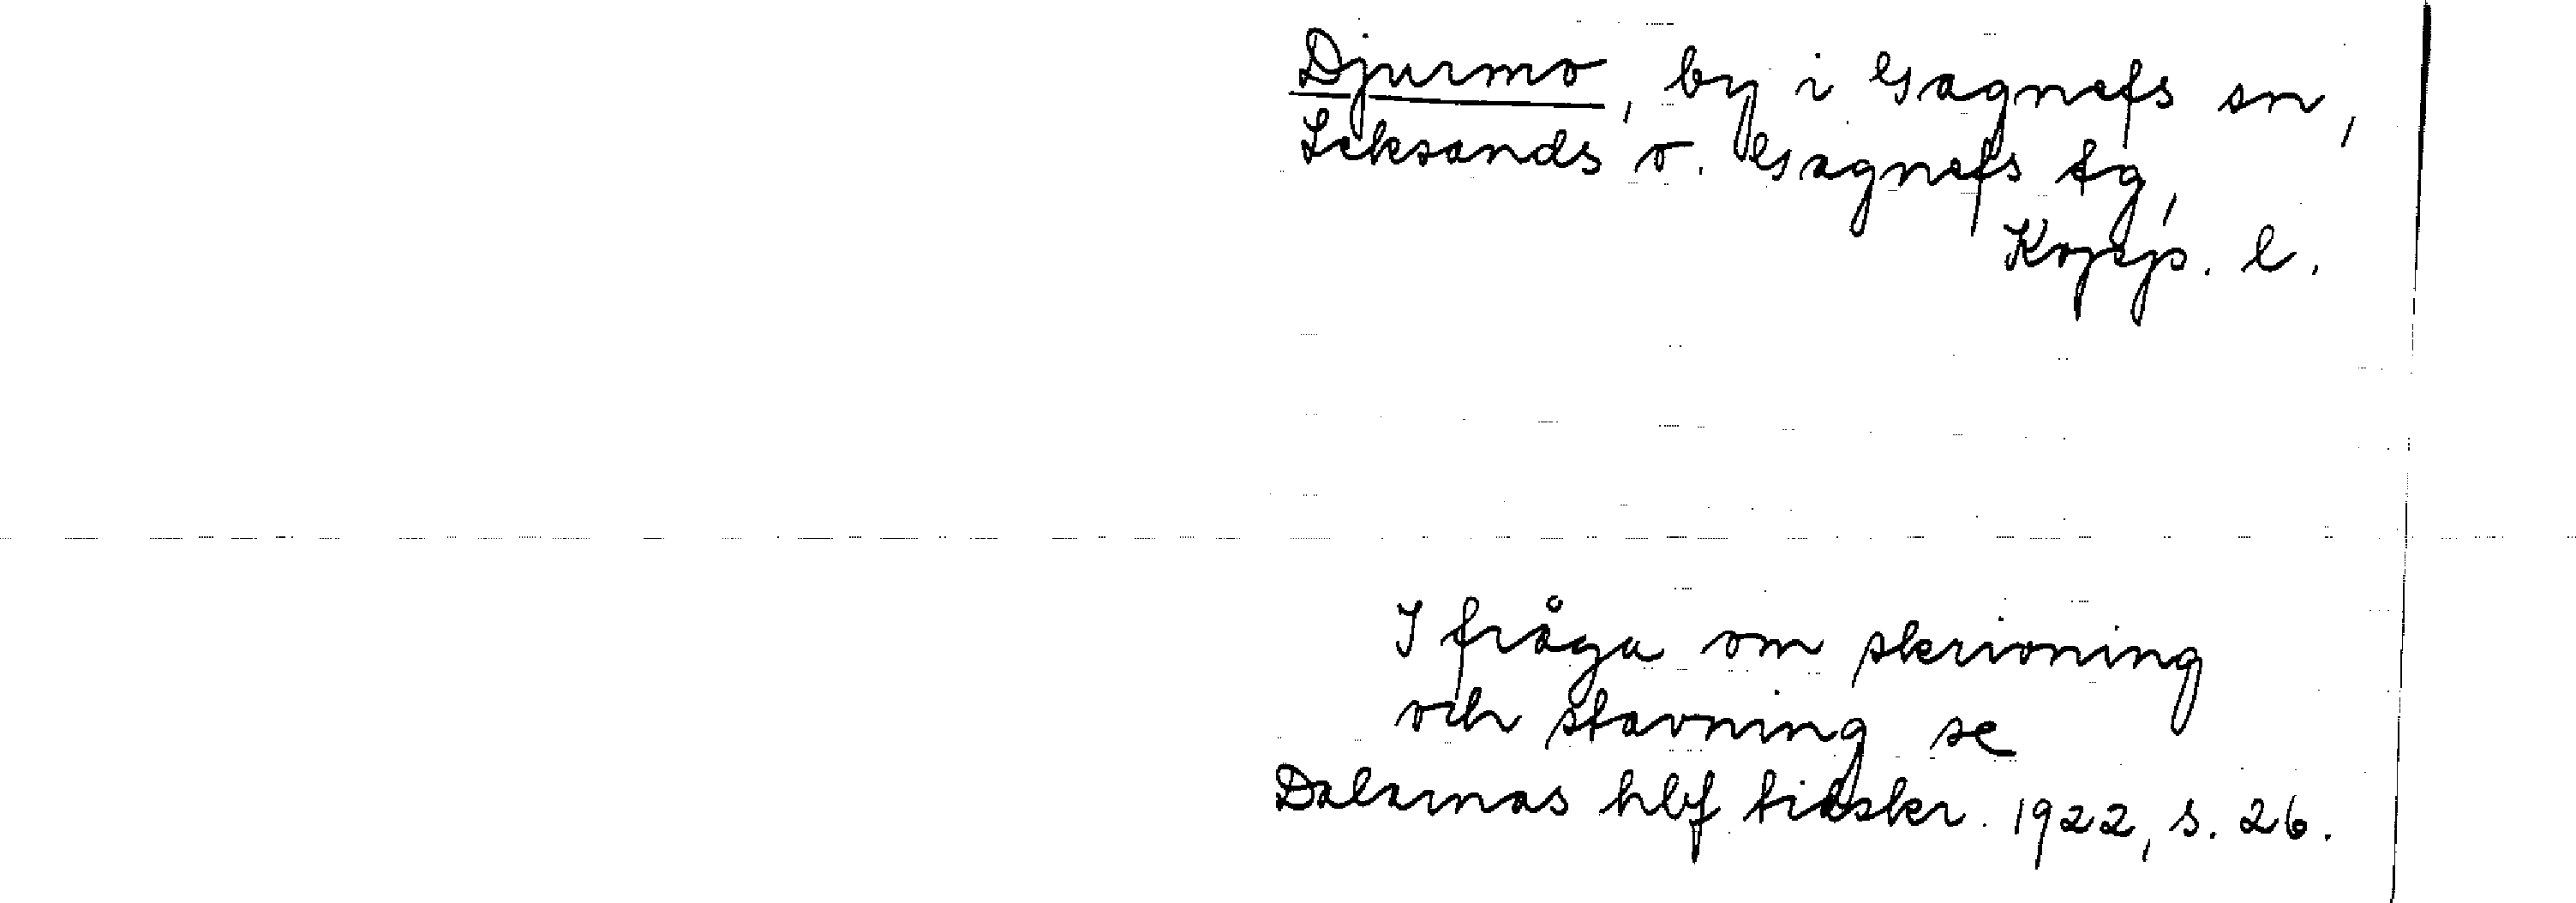 Djurmo, by i Gagnefs sn,
Leksands o. Gagnefs tg,
Kopp. l.
I fråga om skrivning
och stavning se
Dalarnas hbf tidskr. 1922, s. 26.